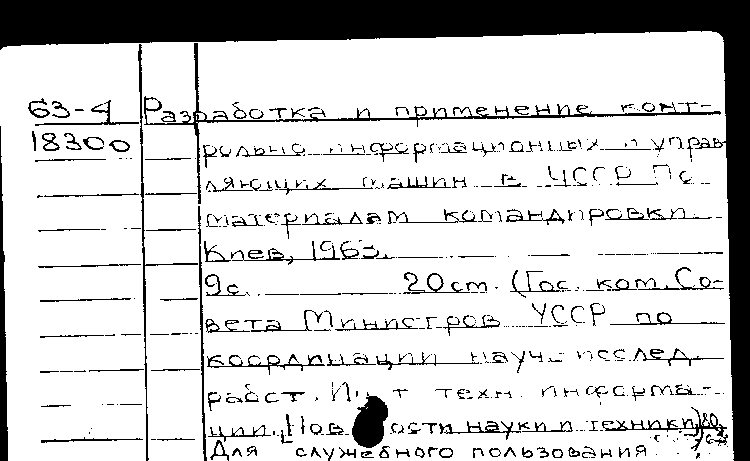 63-4 Разработка и применение конт-
18300 рольно информационных и управ
ляющих машин в ЧССР По
материалам командировки.
Киев, 1963.
9с. 20см. (Гос. ком. Со-
вета Министров УССР по
координации науч.- исслед.
работ. Ин-т техн. информа-
ции. Новости науки и техники)
Для служебного пользования